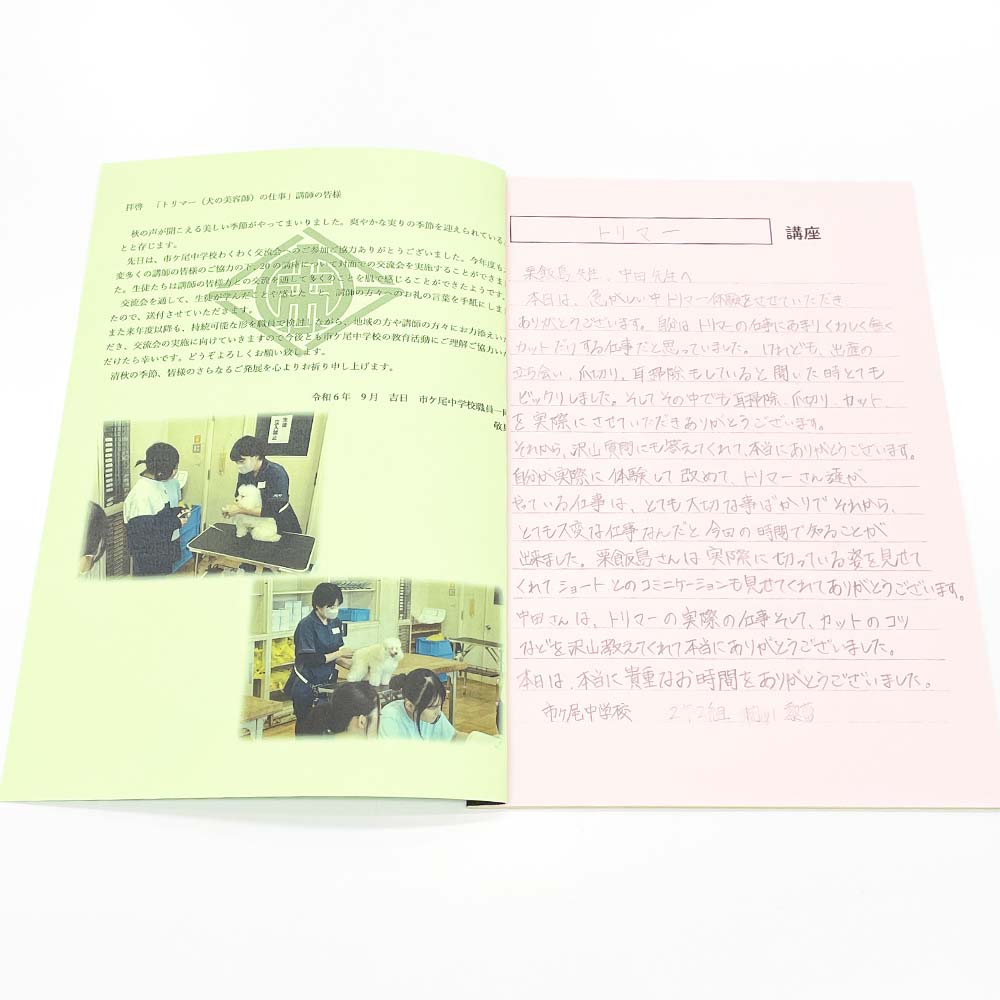 拝啓 「トリマー（犬の美容師）の仕事」講師の皆様
秋の声が聞こえる美しい季節がやってまいりました。爽やかな実りの季節を迎えられている
とと存じます。
先日は、市ケ尾中学校わくわく交流会へのご参加ご協力ありがとうございました。今年度も
変多くの講師の皆様のご協力の下、20の講座について対面での交流会を実施することができま
た。生徒たちは講師の皆様方との交流を通して多くのことを肌で感じることができたようです。
交流会を通して、生徒が学んだことや感じた 講師の方々へのお礼の言葉を手紙にしま
たので、送付させていただきます。
また来年度以降も、持続可能な形を職員で検討しながら、地域の方や講師の方々にお力添えいた
だき、交流会の実施に向けていきますので今後とも市ケ尾中学校の教育活動にご理解ご協力い
だけたら幸いです。どうぞよろしくお願い致します。
清秋の季節、皆様のさらなるご発展を心よりお祈り申し上げます。
令和6年 9月 吉日 市ケ尾中学校職員一同
敬具
トリマー 講座
粟飯島先生、中田先生へ
本日は、急がしい中トリマー体験をさせていただき
ありがとうございます。自分はトリマーの仕事にあまりくわしく無く
カットだけする仕事だと思っていました。けれども、出産の
立ち会い、爪切り、耳掃除もしていると聞いた時とても
ビックリしました。そしてその中でも耳掃除、爪切り、カット、
を実際にさせていただきありがとうございます。
それから、沢山質問にも答えてくれて、本当にありがとうございます。
自分が実際に体験して改めて、トリマーさん達が
やっている仕事は、とても大切な事ばかりでそれから、
とても大変な仕事なんだと今回の時間で知ることが
出来ました。粟飯島さんは実際に切っている姿を見せて
くれてショートとのコミニケーションも見せてくれてありがとうございます。
中田さんは、トリマーの実際の仕事そして、カットのコツ
などを沢山教えてくれて本当にありがとうございました。
本日は、本当に貴重なお時間をありがとうございました。
市ケ尾中学校 2年2組